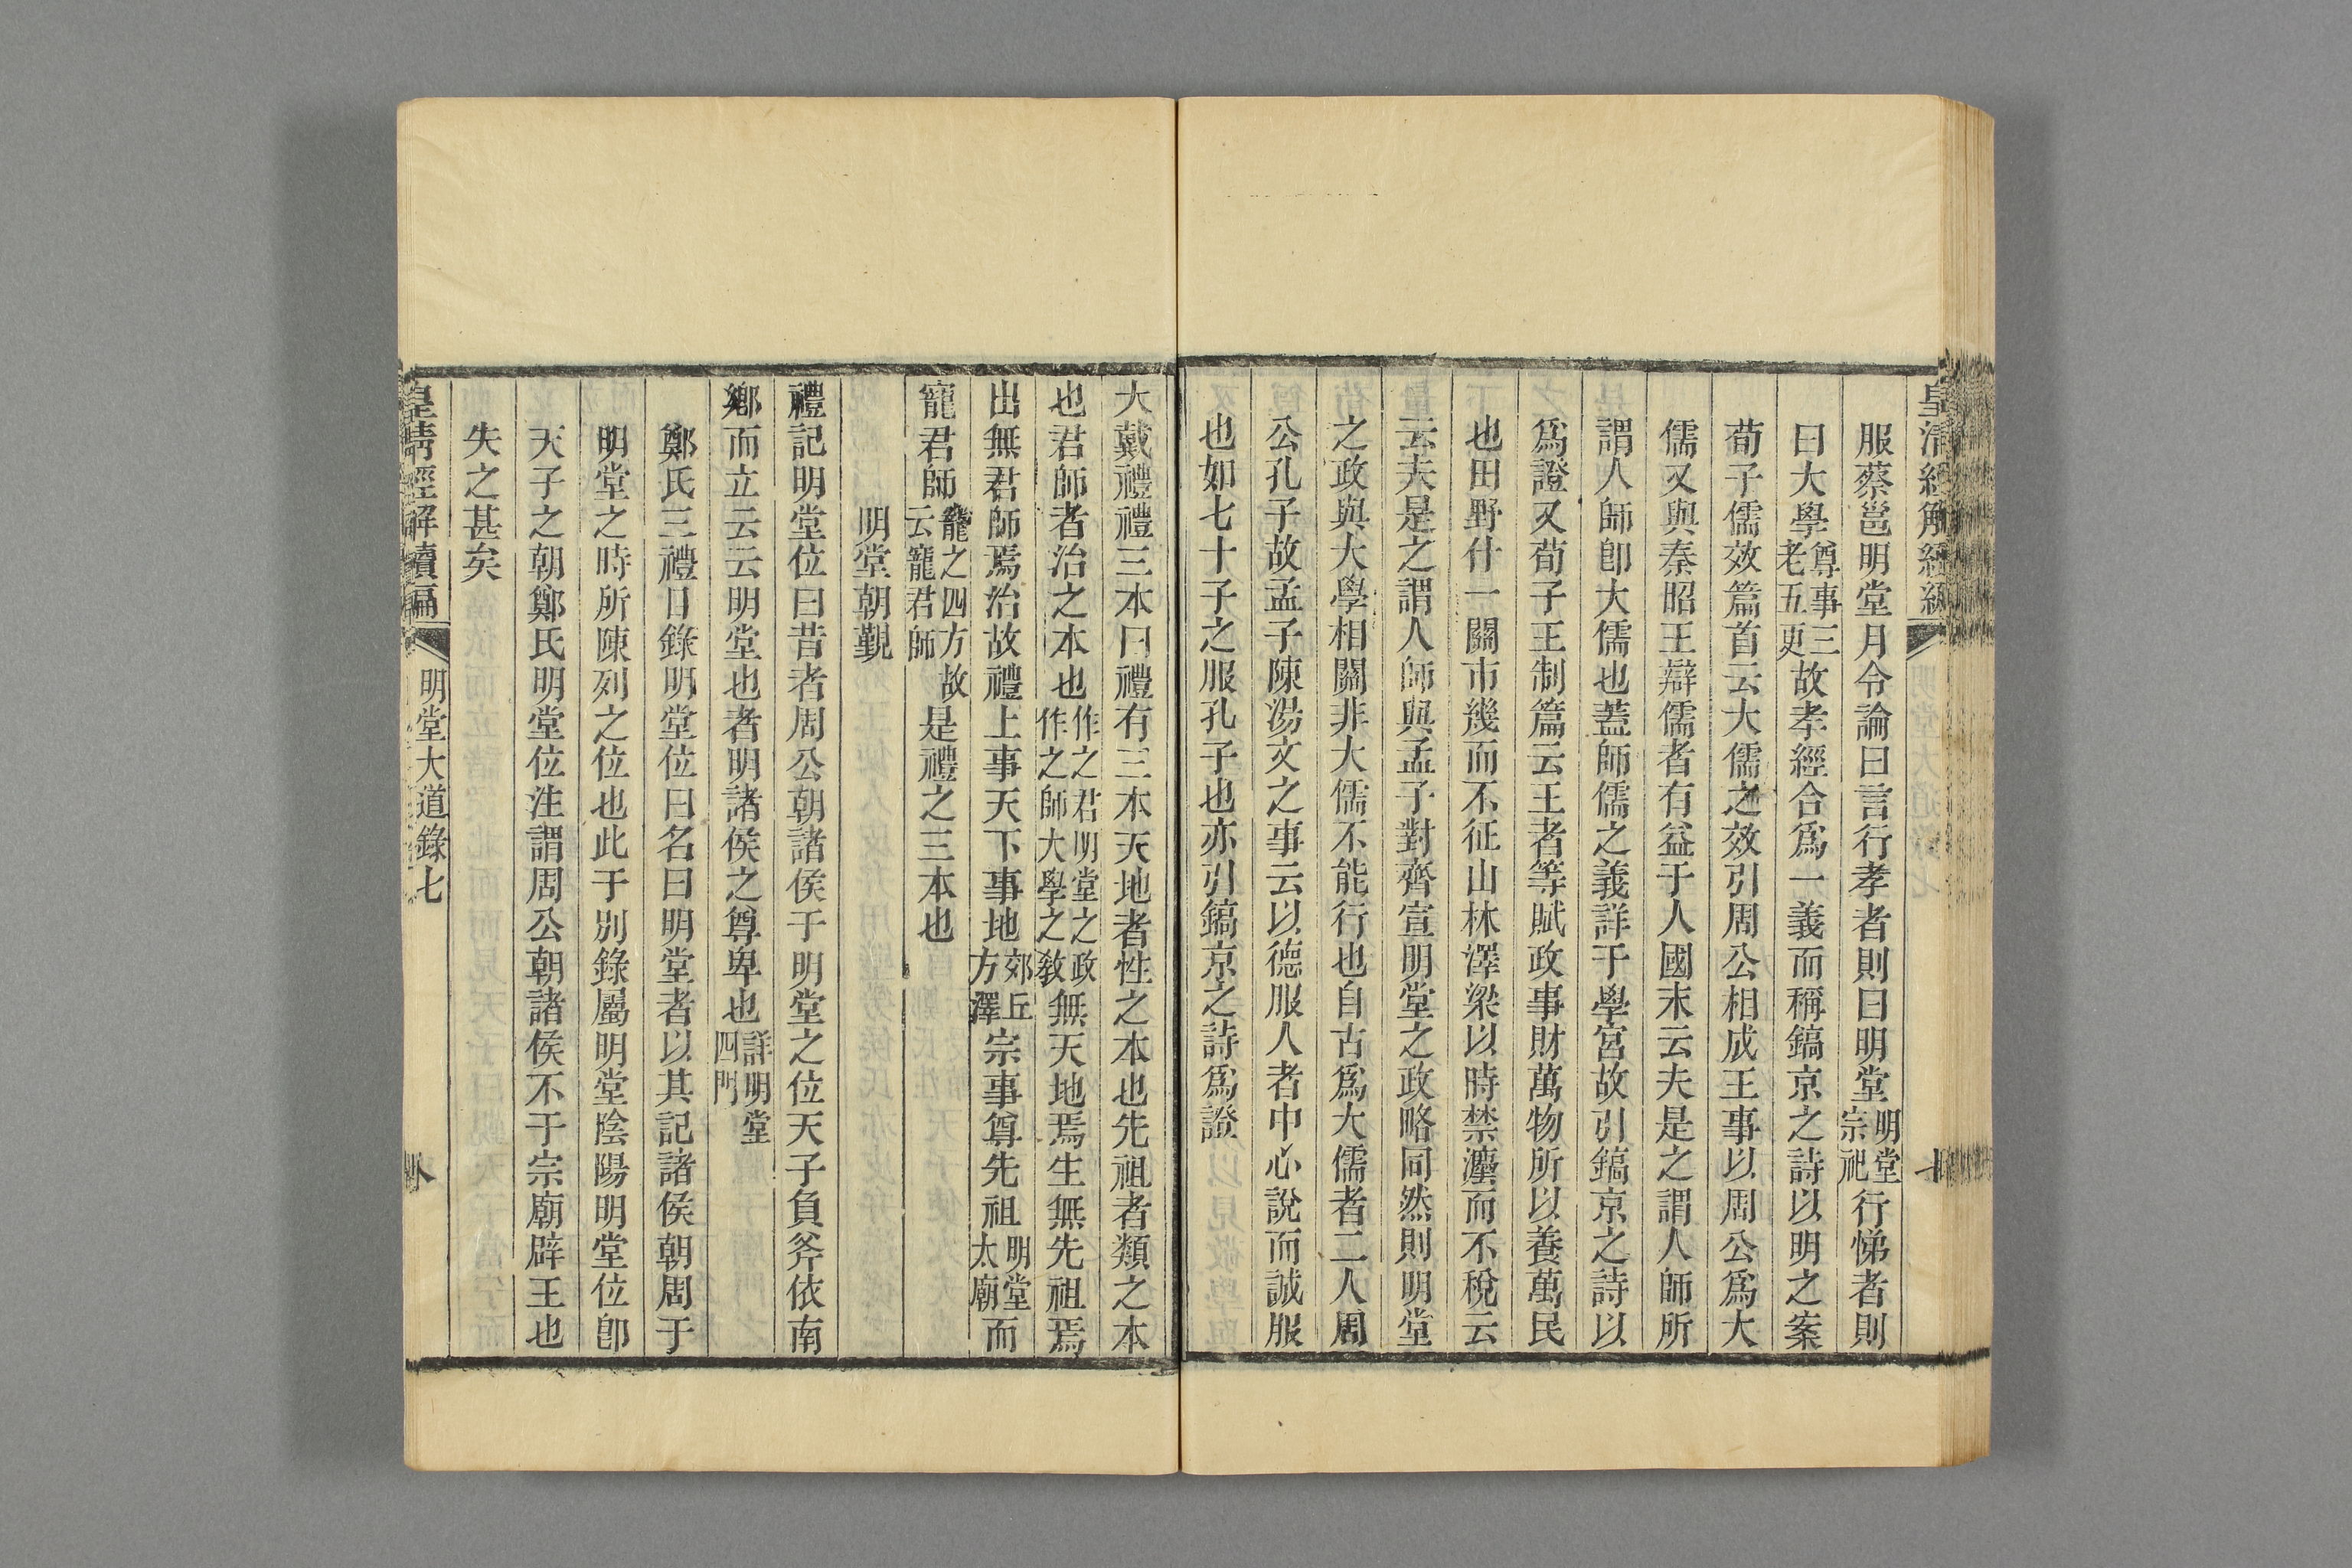 服蔡邕明堂月令論曰言行孝者則曰明堂明堂宗祀行悌者則
曰大學尊事三老五更故孝經合爲一義而稱鎬京之詩以明之案
荀子儒效篇首云大儒之效引周公相成王事以周公爲大
儒又與秦昭王辯儒者有益于人國末云夫是之謂人師所
謂人師卽大儒也蓋師儒之義詳于學宮故引鎬京之詩以
爲證又荀子王制篇云王者等賦政事財萬物所以養萬民
也田野什一關市幾而不征山林澤梁以時禁㢆而不稅云
云夫是之謂人師與孟子對齊宣明堂之政略同然則明堂
之政與大學相關非大儒不能行也自古爲大儒者二人周
公孔子故孟子陳湯文之事云以德服人者中心說而誠服
也如七十子之服孔子也亦引鎬京之詩爲證
大戴禮禮三本曰禮有三本天地者性之本也先祖者類之本
也君師者治之本也作之君明堂之政作之師大學之教無天地焉生無先祖焉
出無君師焉治故禮上事天下事地郊丘方澤宗事尊先祖明堂太廟而
寵君師寵之四方故云寵君師是禮之三本也
明堂朝覲
禮記明堂位曰昔者周公朝諸侯于明堂之位天子負斧依南
鄉而立云云明堂也者明諸侯之尊卑也詳明堂四門
鄭氏三禮目錄明堂位曰名曰明堂者以其記諸侯朝周于
明堂之時所陳列之位也此于別錄屬明堂陰陽明堂位卽
天子之朝鄭氏明堂位注謂周公朝諸侯不于宗廟辟王也
失之甚矣
皇清經解續編 明堂大道錄七